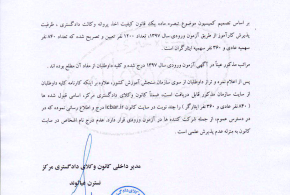 بر اساس تصمیم کمیسیون موضوع تبصره ماده یک قانون کیفیت اخذ پروانه وکالت دادگستری ، ظرفیت
پذیرش کارآموز از طریق آزمون ورودی سال ۱۳۹۷، تعداد ۱۲۰۰ نفر تعیین و تصریح شده که تعداد ۸۴۰ نفر
سهمیه عادی و ۳۶۰ نفر سهمیه ایثارگران است.
مراتب مذکور عیناً در آگهی آزمون ورودی سال ۱۳۹۷ درج شده و کلیه داوطلبان از مفاد آن مطلع بوده اند.
پس از اعلام نمره و تراز داوطلبان از سوی سازمان سنجش آموزش کشور، علاوه بر اینکه کارنامه کلیه داوطلبان
از سایت سازمان مذکور قابل دریافت است، ضمناً کانون وکلای دادگستری مرکز، اسامی قبول شده ها
(۸۴۰ نفر عادی و ۳۶۰ نفر ایثارگر) را چند نوبت در سایت کانون (icbar.ir) درج و اطلاع رسانی نموده که در
دسترس عموم، از جمله شرکت کننده ها در آزمون ورودی قرار دارد. عدم درج نام اشخاص در سایت
کانون به منزله عدم پذیرش علمی است.
مدیر داخلی کانون وکلای دادگستری مرکز
نسترن ضیالوند